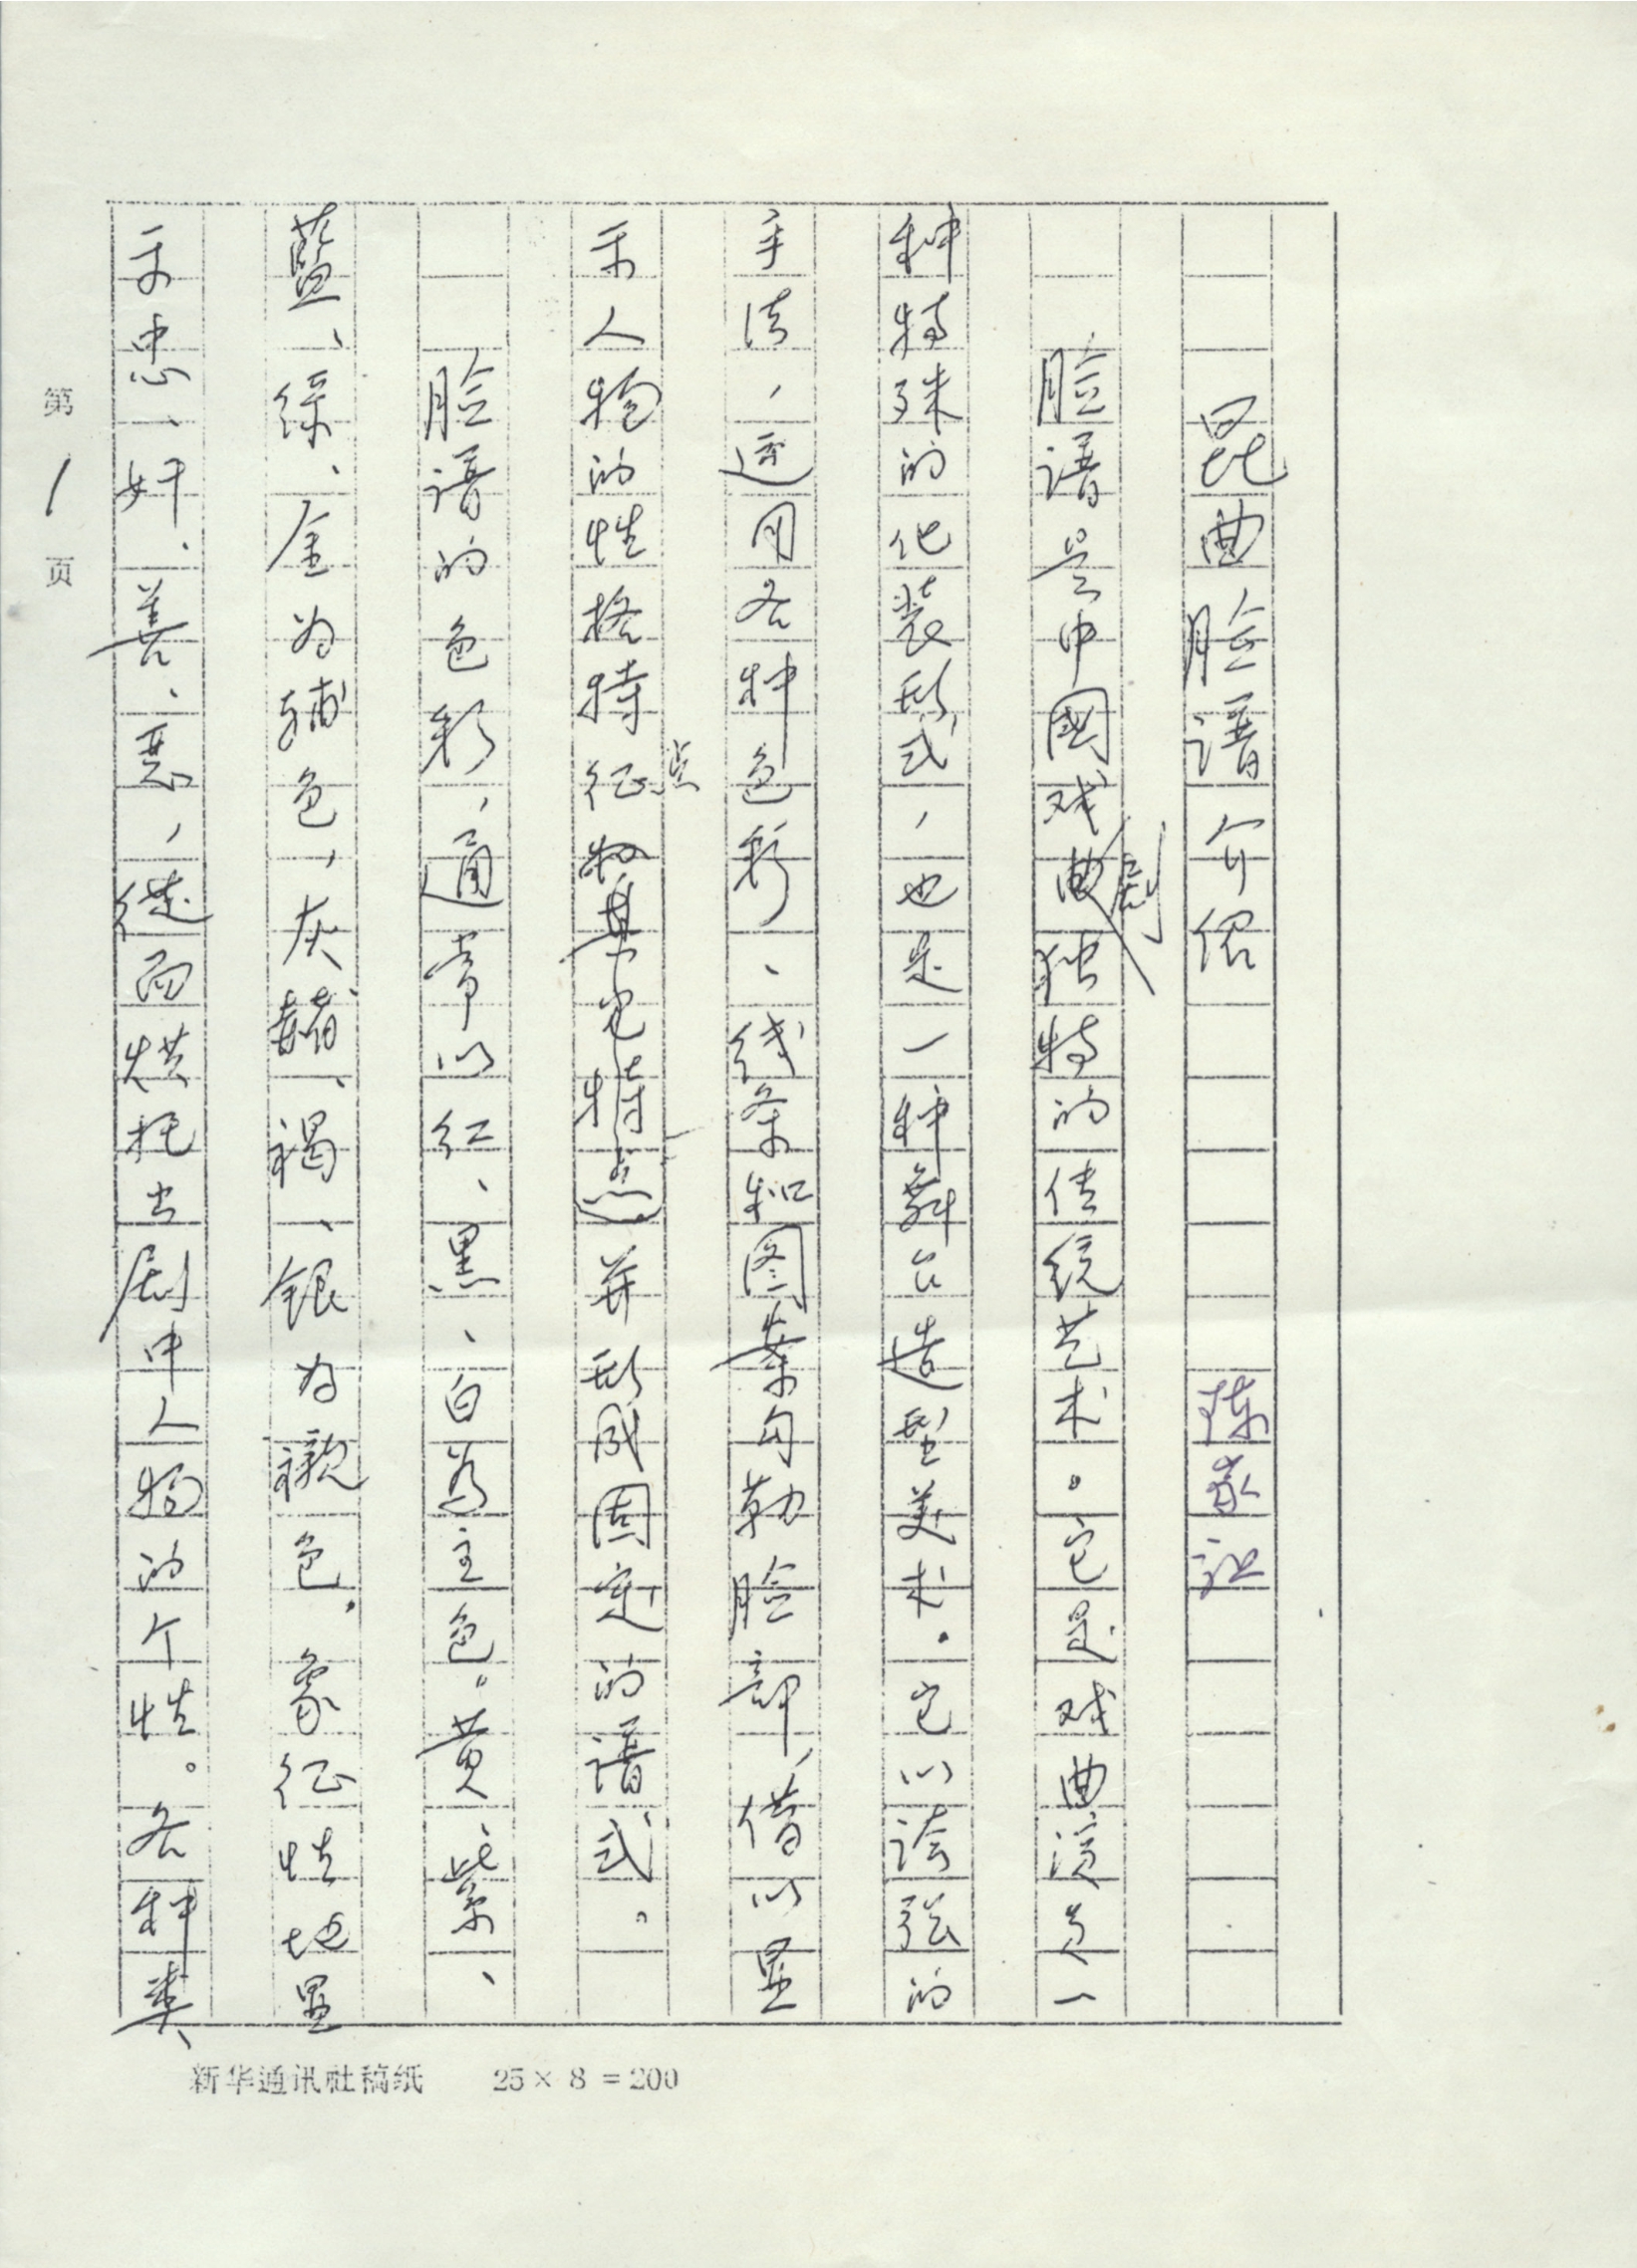 昆曲脸谱介绍 陈家让
脸谱是中國戏剧独特的传统艺术。它是戏曲演员一
种特殊的化装形式，也是一种舞台造型美术。它以誇张的
手法，适用各种色彩、线条和图案勾勒脸部，借以显
示人物的性格特点并形成固定的谱式。
脸谱的色彩，通常以红、黑、白为主色。黄、紫、
蓝、绿、金为辅色，灰、赭、褐、银为襯色。象征性地显
示忠、奸、善、恶，從而烘托出剧中人物的个性。各种类
第1页
新华通讯社稿纸 25×8=200